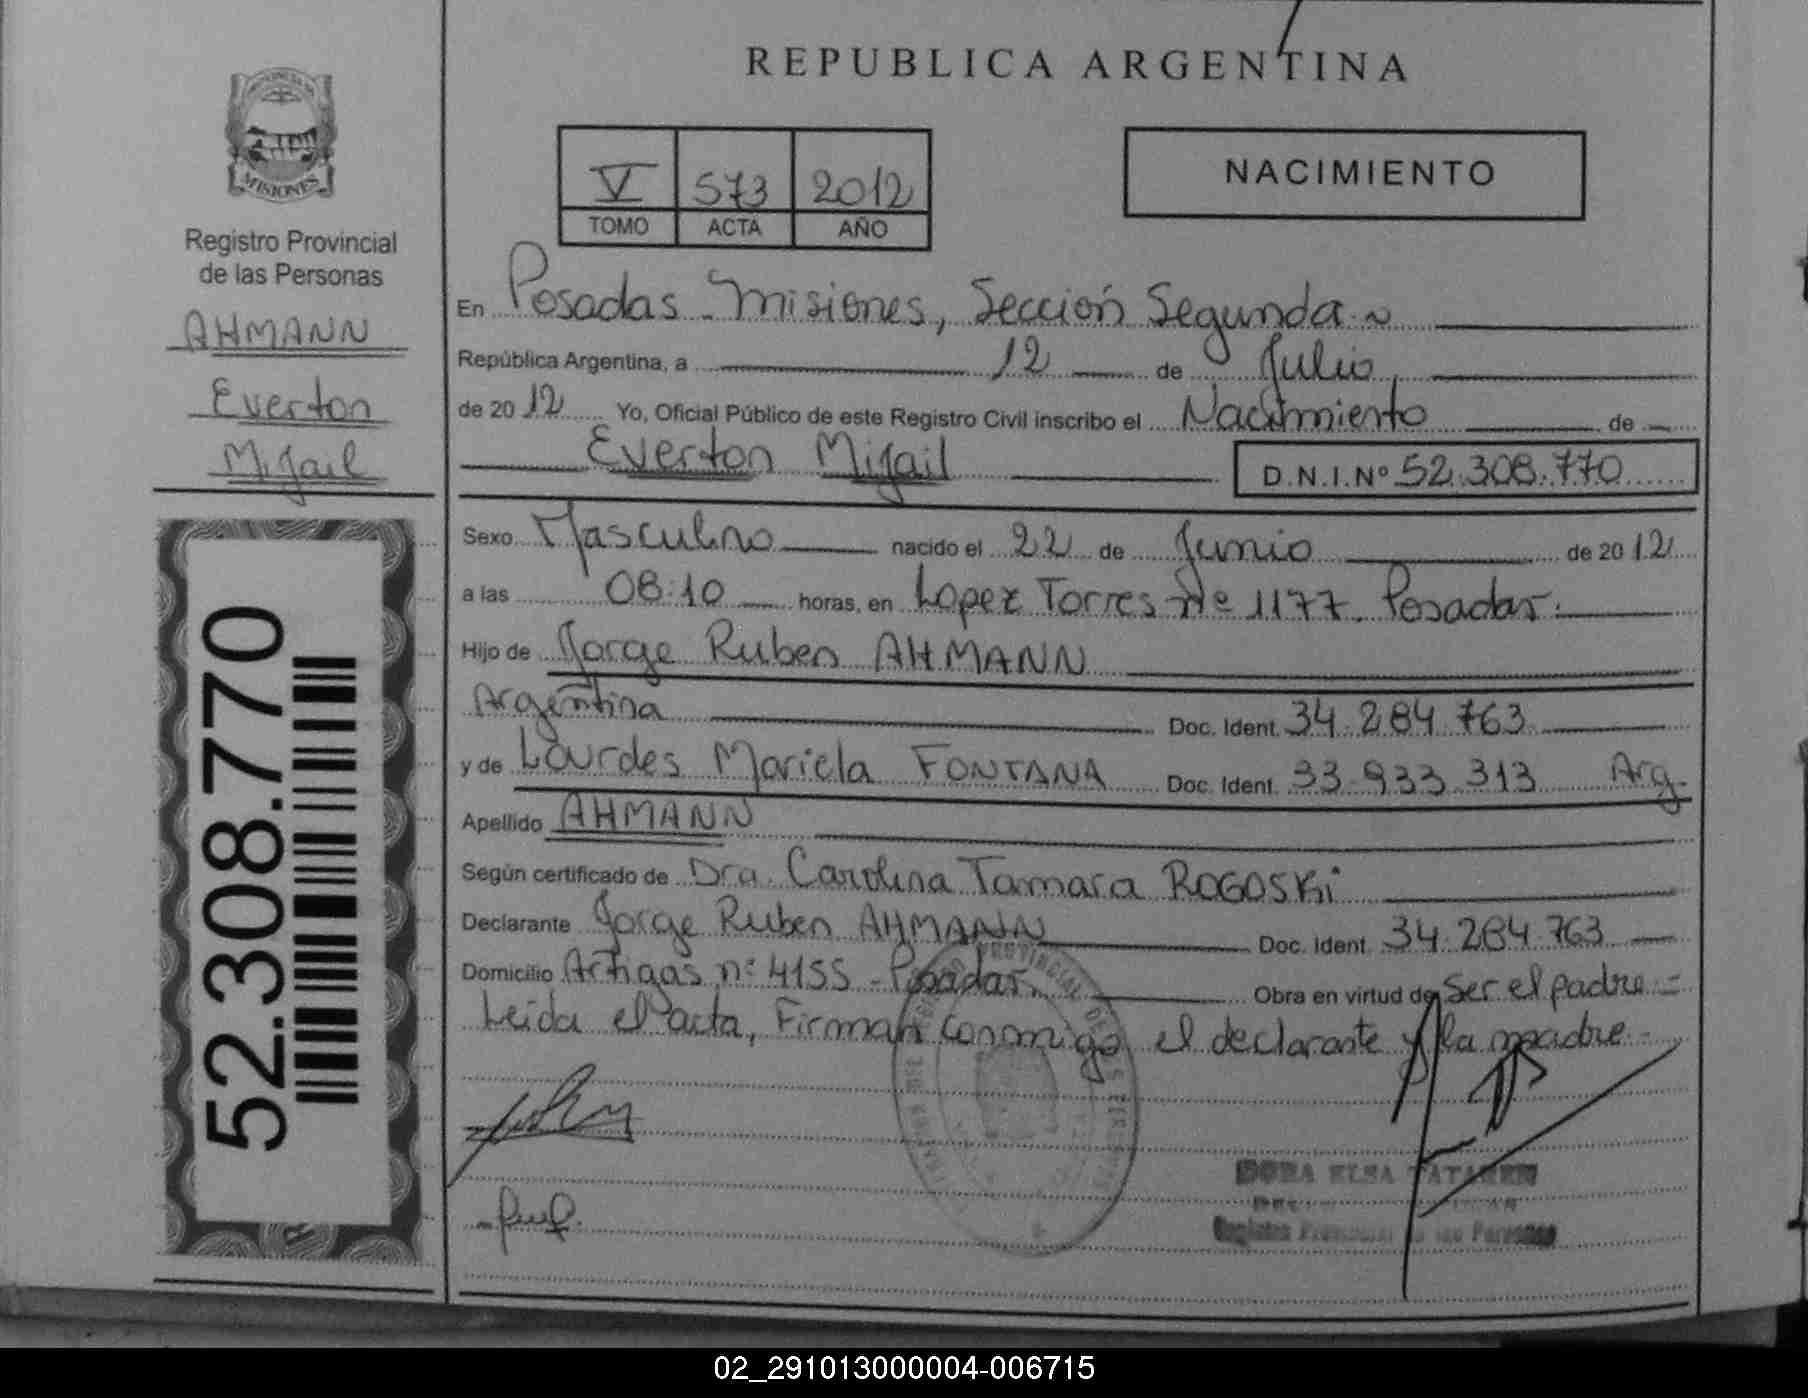 REPUBLICA ARGENTINA
MISIONES
Registro Provincial
de las Personas
AHMANN
Everton
Mijail
52.308.770
V 573 2012
TOMO ACTA AÑO
NACIMIENTO
En Posadas - Misiones, Sección Segunda.~
República Argentina, a 12 de Julio,
de 2012 Yo, Oficial Público de este Registro Civil inscribo el Nacimiento de
Everton Mijail D.N.I.Nº 52.308.770
Sexo Masculino nacido el 22 de Junio de 2012
a las 08:10 horas, en Lopez Torres Nº 1177. Posadas.
Hijo de Jorge Ruben AHMANN
Argentina Doc. Ident. 34.284.763
y de Lourdes Mariela FONTANA Doc. Ident. 33.933.313 Arg.
Apellido AHMANN
Según certificado de Dra. Carolina Tamara ROGOSKi
Declarante Jorge Ruben AHMANN Doc. Ident. 34.284.763
Domicilio Artigas nº 4155 - Posadas. Obra en virtud de Ser el padre =
Leida el acta, Firman conmigo el declarante y la madre.-
DORA ELSA
Registro Provincial de las Personas
02_291013000004-006715